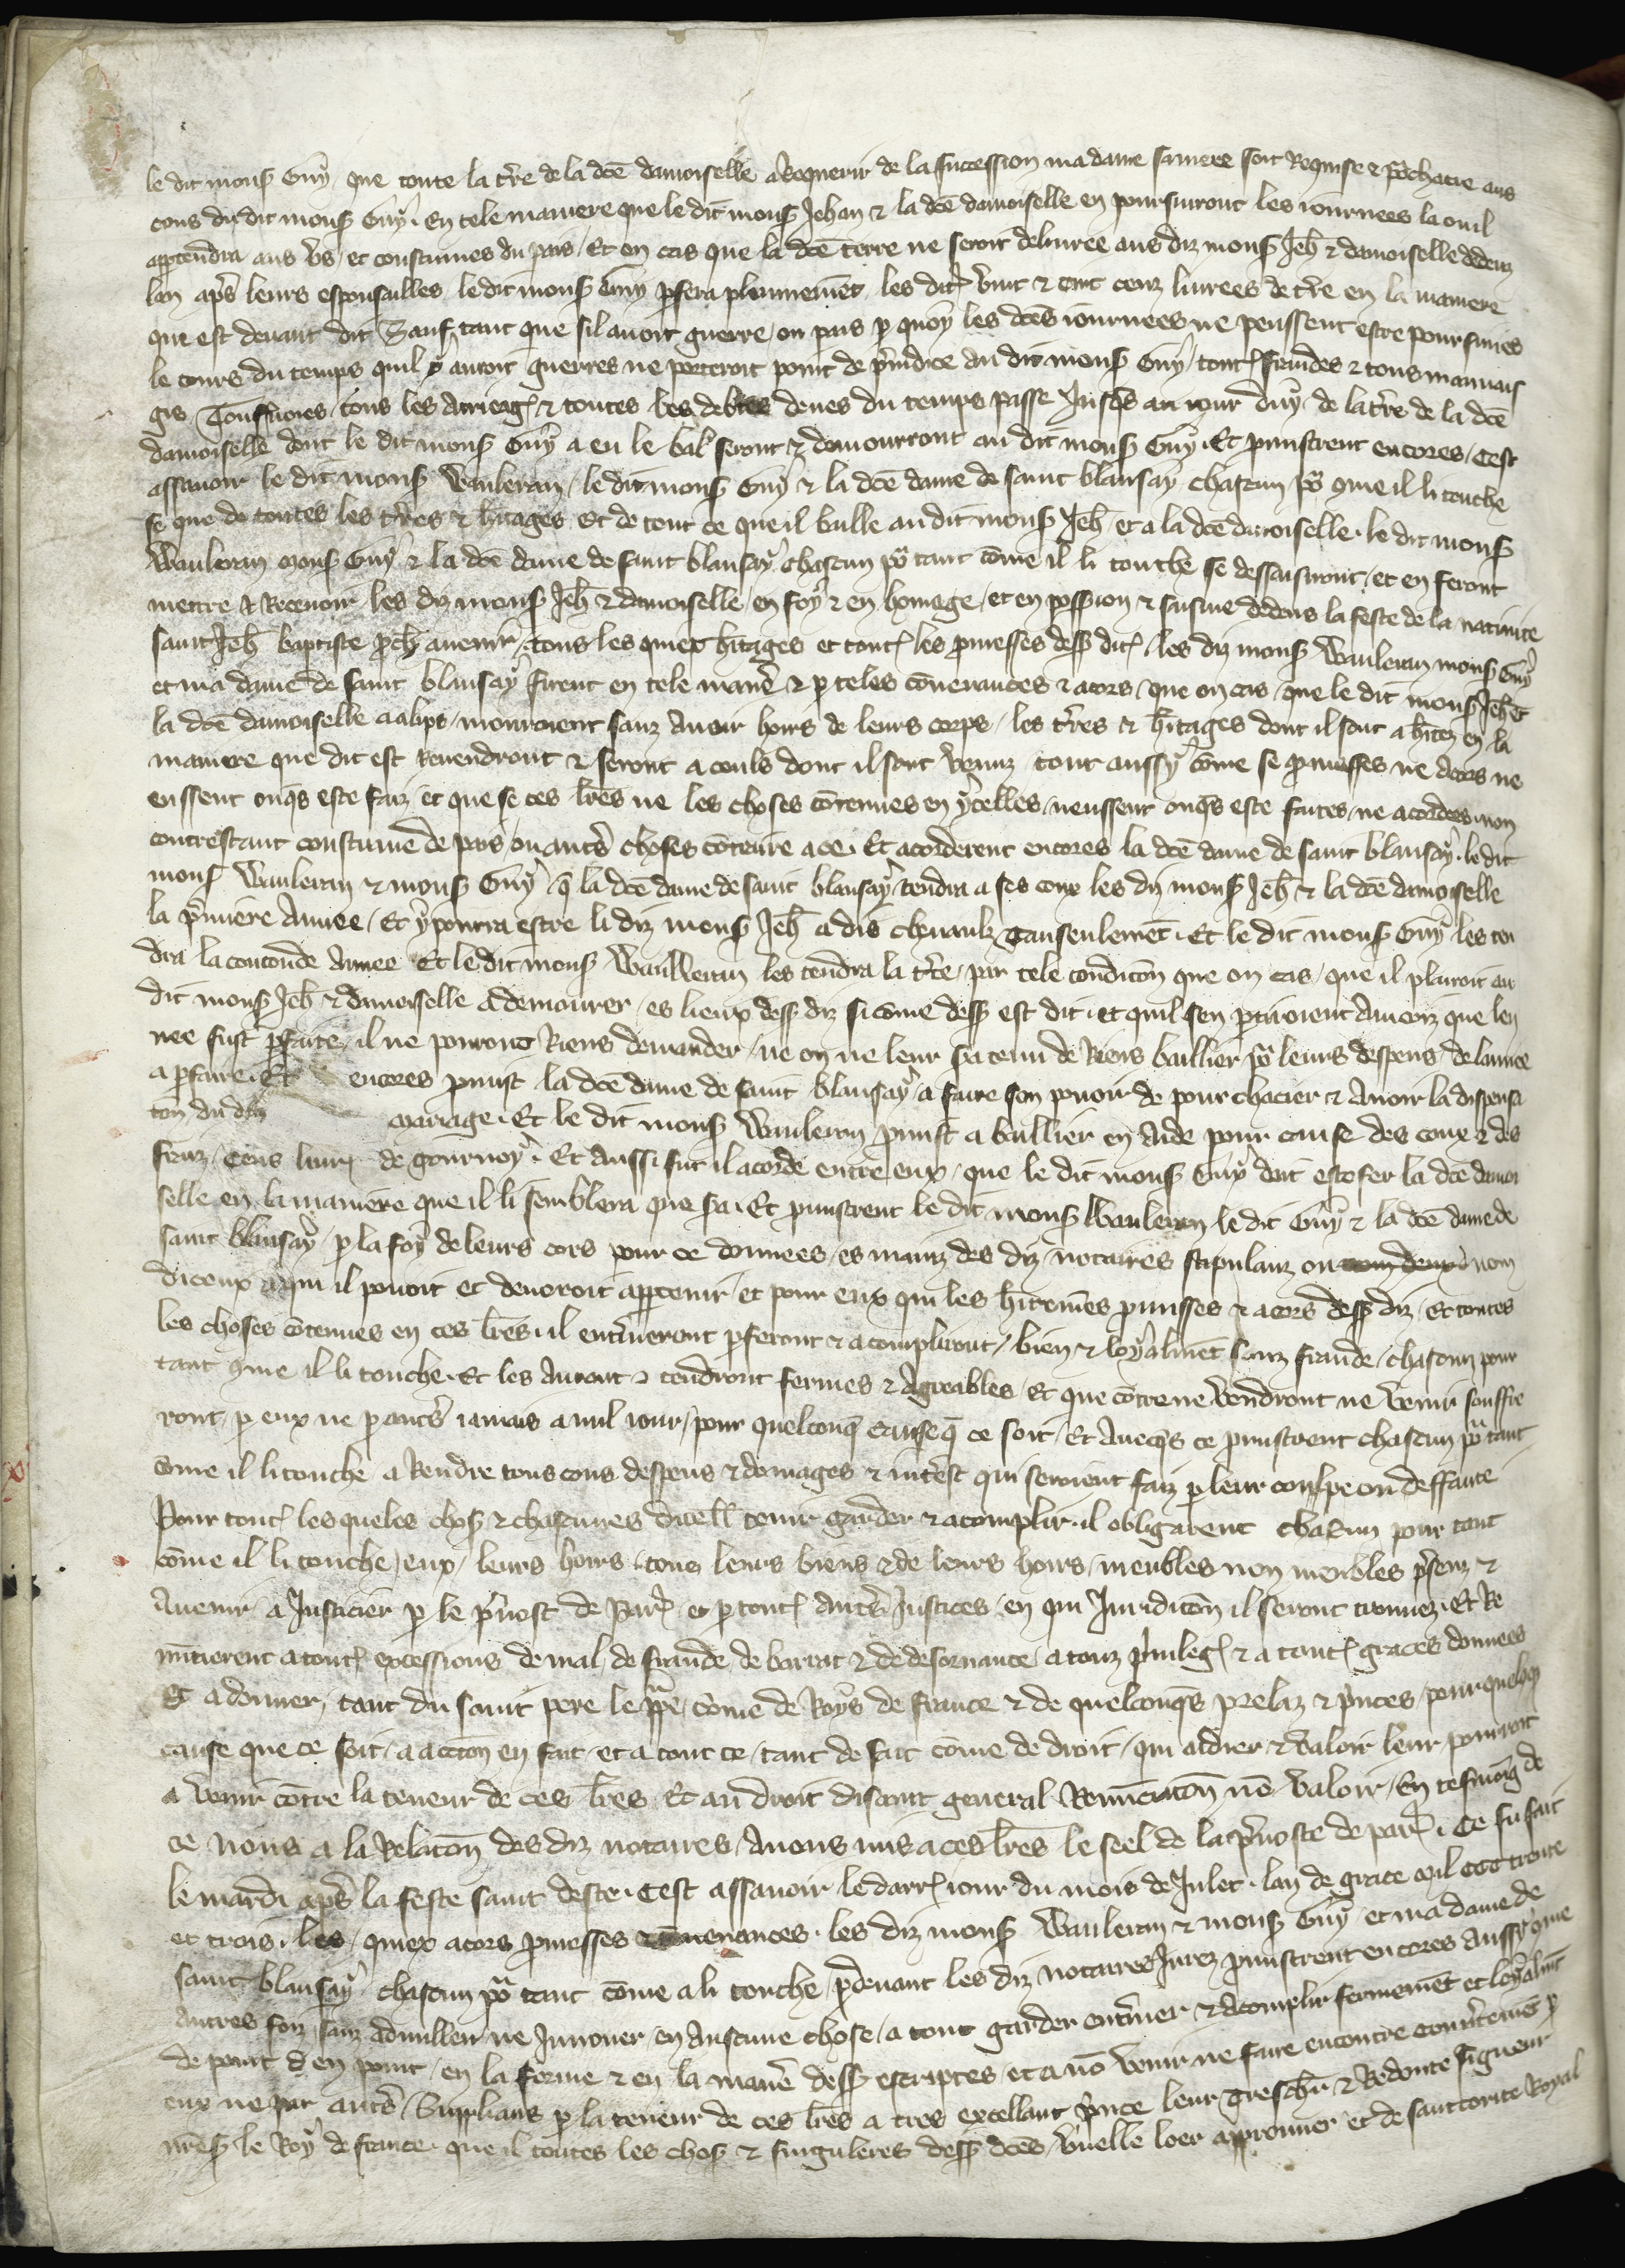 le dit mons Guy que toute la tre de la dce damoiselle a requerir de la succession madame sa mere soit requise & pchacie aus
cous du dit mons Guy. En tele maniere que le dit mons Jehan & la dce damoiselle en poursuiront les iournees la ou il
appendra aus us et coustumes du pais. Et en cas que la dce terre ne seroit deliuree aus diz mons Jeh & damoiselle dedenz
lan aps leurs espousailles le dit mons Guy pfera plainnement les dit vint & cinc cenz liurees de tre en la maniere
que est deuant dit Sauf tant que sil auoit guerre ou pais p quoy les dces iournees ne peussent estre poursuiies
le cours du temps quil y auroit guerres ne porteroit point de preiudice au dit mons Guy toutes fraudes & tous mauuais
gis Touz les arrierages & toutes les debtes deues du temps passe Jusqs au iour duy de la tre de la dce
damoiselle dont le dit mons Guy a eu le bal seront & demourront au dit mons Guy. Et pmistrent encores cest
assauoir le dit mons Waleran le dit mons Guy & la dce dame de saint blansay chascun por 9me il li touche
se que de toutes les tres & hitages et de tout ce que il balle au dit mons Jeh et a la dce damoiselle. le dit mons
Waleran mons Guy & la dce dame de saint blansay chascun por tant come il li touche se dessaisiront et en feront
mettre & receuoir les diz mons Jeh & damoiselle en foy & en homage et en possion & saisine dedens la feste de la natiuite
saint Jeh baptiste pch auenir tous les quiex hitages et toutes les pmesses dess dites les diz mons Waleran mons Guy
et ma dame de saint blansay firent en tele maniere & p teles couenances & acors que en cas que le dit mons Jeh et
la dce damoiselle mouroient sanz auoir hoirs de leurs corps les tres & hitages dont il sont ahitez en la
maniere que dit est reuendront & seront a ceuls dont il sont venuz tout aussy come se pmesses ne acors ne
eussent onqs este faiz et que se ces lres ne les choses contenues en ycelles neussent onqs este faites ne acordees non
contrestant coustume de pais ou autres choses contraire a ce. Et acorderent encores la dce dame de saint blansay. le dit
mons Waleran & mons Guy q la dce dame de saint blansay tendra a ses coux les diz mons Jeh & la dce damoiselle
la pmiere annee. Et y pourra estre li diz mons Jeh a dis cheuaulz tanseulement. Et le dit mons Guy les ten
dra la seconde annee Et le dit mons Waleran les tendra la tierce par tele condicion que en cas que il plairoit au
dit mons Jeh & damoiselle a demourer es lieux dess diz si come dess est dit et quil sen ptiroient ancoiz que len
nee fust pfaite il ne pouront riens demander ne on ne leur sera tenu de riens baillier por leurs despens de lannee
a pfaire. Et encores pmist la dce dame de saint blansay a faire son pouoir de pour chacier & auoir la dispensa
tion du dit mariage. Et le dit mons Waleran pmist a baillier en aide pour cause des coux & des
fraiz cens liures de gournoy. Et aussi fut il acorde entre eux que le dit mons Guy doit estofer la dce damoi
selle en la maniere que il li semblera que sera. Et pmistrent le dit mons Waleran le dit Guy & la dce dame de
saint blansay p la foy de leurs cors pour ce donnees es mains des diz notaires stipulanz ou nom
diceux a qui il pouoit et deuoroit appartenir et pour eux que les hitemens pmisses & acors dess diz et toutes
les choses contenues en ces lres. il enterineront pferont & acompliront bien & loyalment sanz fraude chascun pour
tant 9me il li touche. Et les auront & tendront fermes & agreables Et que contre ne vendront ne venir souffre
ront p eux ne p autres iamais a nul iour pour quelconq cause q ce soit. Et auecqs ce pmistrent chascun por tant
come il li touche a rendre tous cous despens & domages & interest qui seroient faiz p leur coulpe ou deffaute
Pour toutes lesqueles choses & chascunes dicelles tenir garder & acomplir. il obligerent chascun pour tant
come il li touche eux leurs hoirs tous leurs biens & de leurs hoirs meubles non meubles psenz &
auenir a Justicier p le preuost de Paris et p toutes autres Justices en qui Juridicon il seront trouuez. Et re
nuncierent a toutes excessions de mal de fraude de barrat & de desceuance a touz priuileges & a toutes graces donnees
& a donner tant du saint pere le ppe come de Roys de france & de quelconqs prelaz & princes pour quelconq
cause que ce soit a accion en fait et a tout ce tant de fait come de droit qui aidier & valoir leur pourroit
a venir contre la teneur de ces lres Et au droit disant general Renunciacion no valoir. En tesmoing de
ce nous a la relacion des diz notaires Auons mis a ces lres le seel de la preuoste de paris. Ce fu fait
le mardi aps la feste saint deste. cest assauoir le darrenier iour du mois de Julet. lan de grace mil ccc trente
et trois. les quiex acors pmesses & couenances. les diz mons Waleran & mons Guy et ma dame de
saint blansay chascun por tant come a li touche pdeuant les diz notaires Jurez pmistrent encores aussy 9me
autres foiz sanz adnuller ne Innouer en aucune chose a tout garder enteriner & acomplir fermement et loyalment
de point en point en la forme & en la maniere dess escriptes et a no venir ne faire encontre couuertement p
eux ne par autres Supplians p la teneur de ces lres a tres excellant prince leur treschier & redoute signeur
nres le Roy de france. que il toutes les choses & singuleres dess dces vuelle loer approuuer et de sauctorite Royal